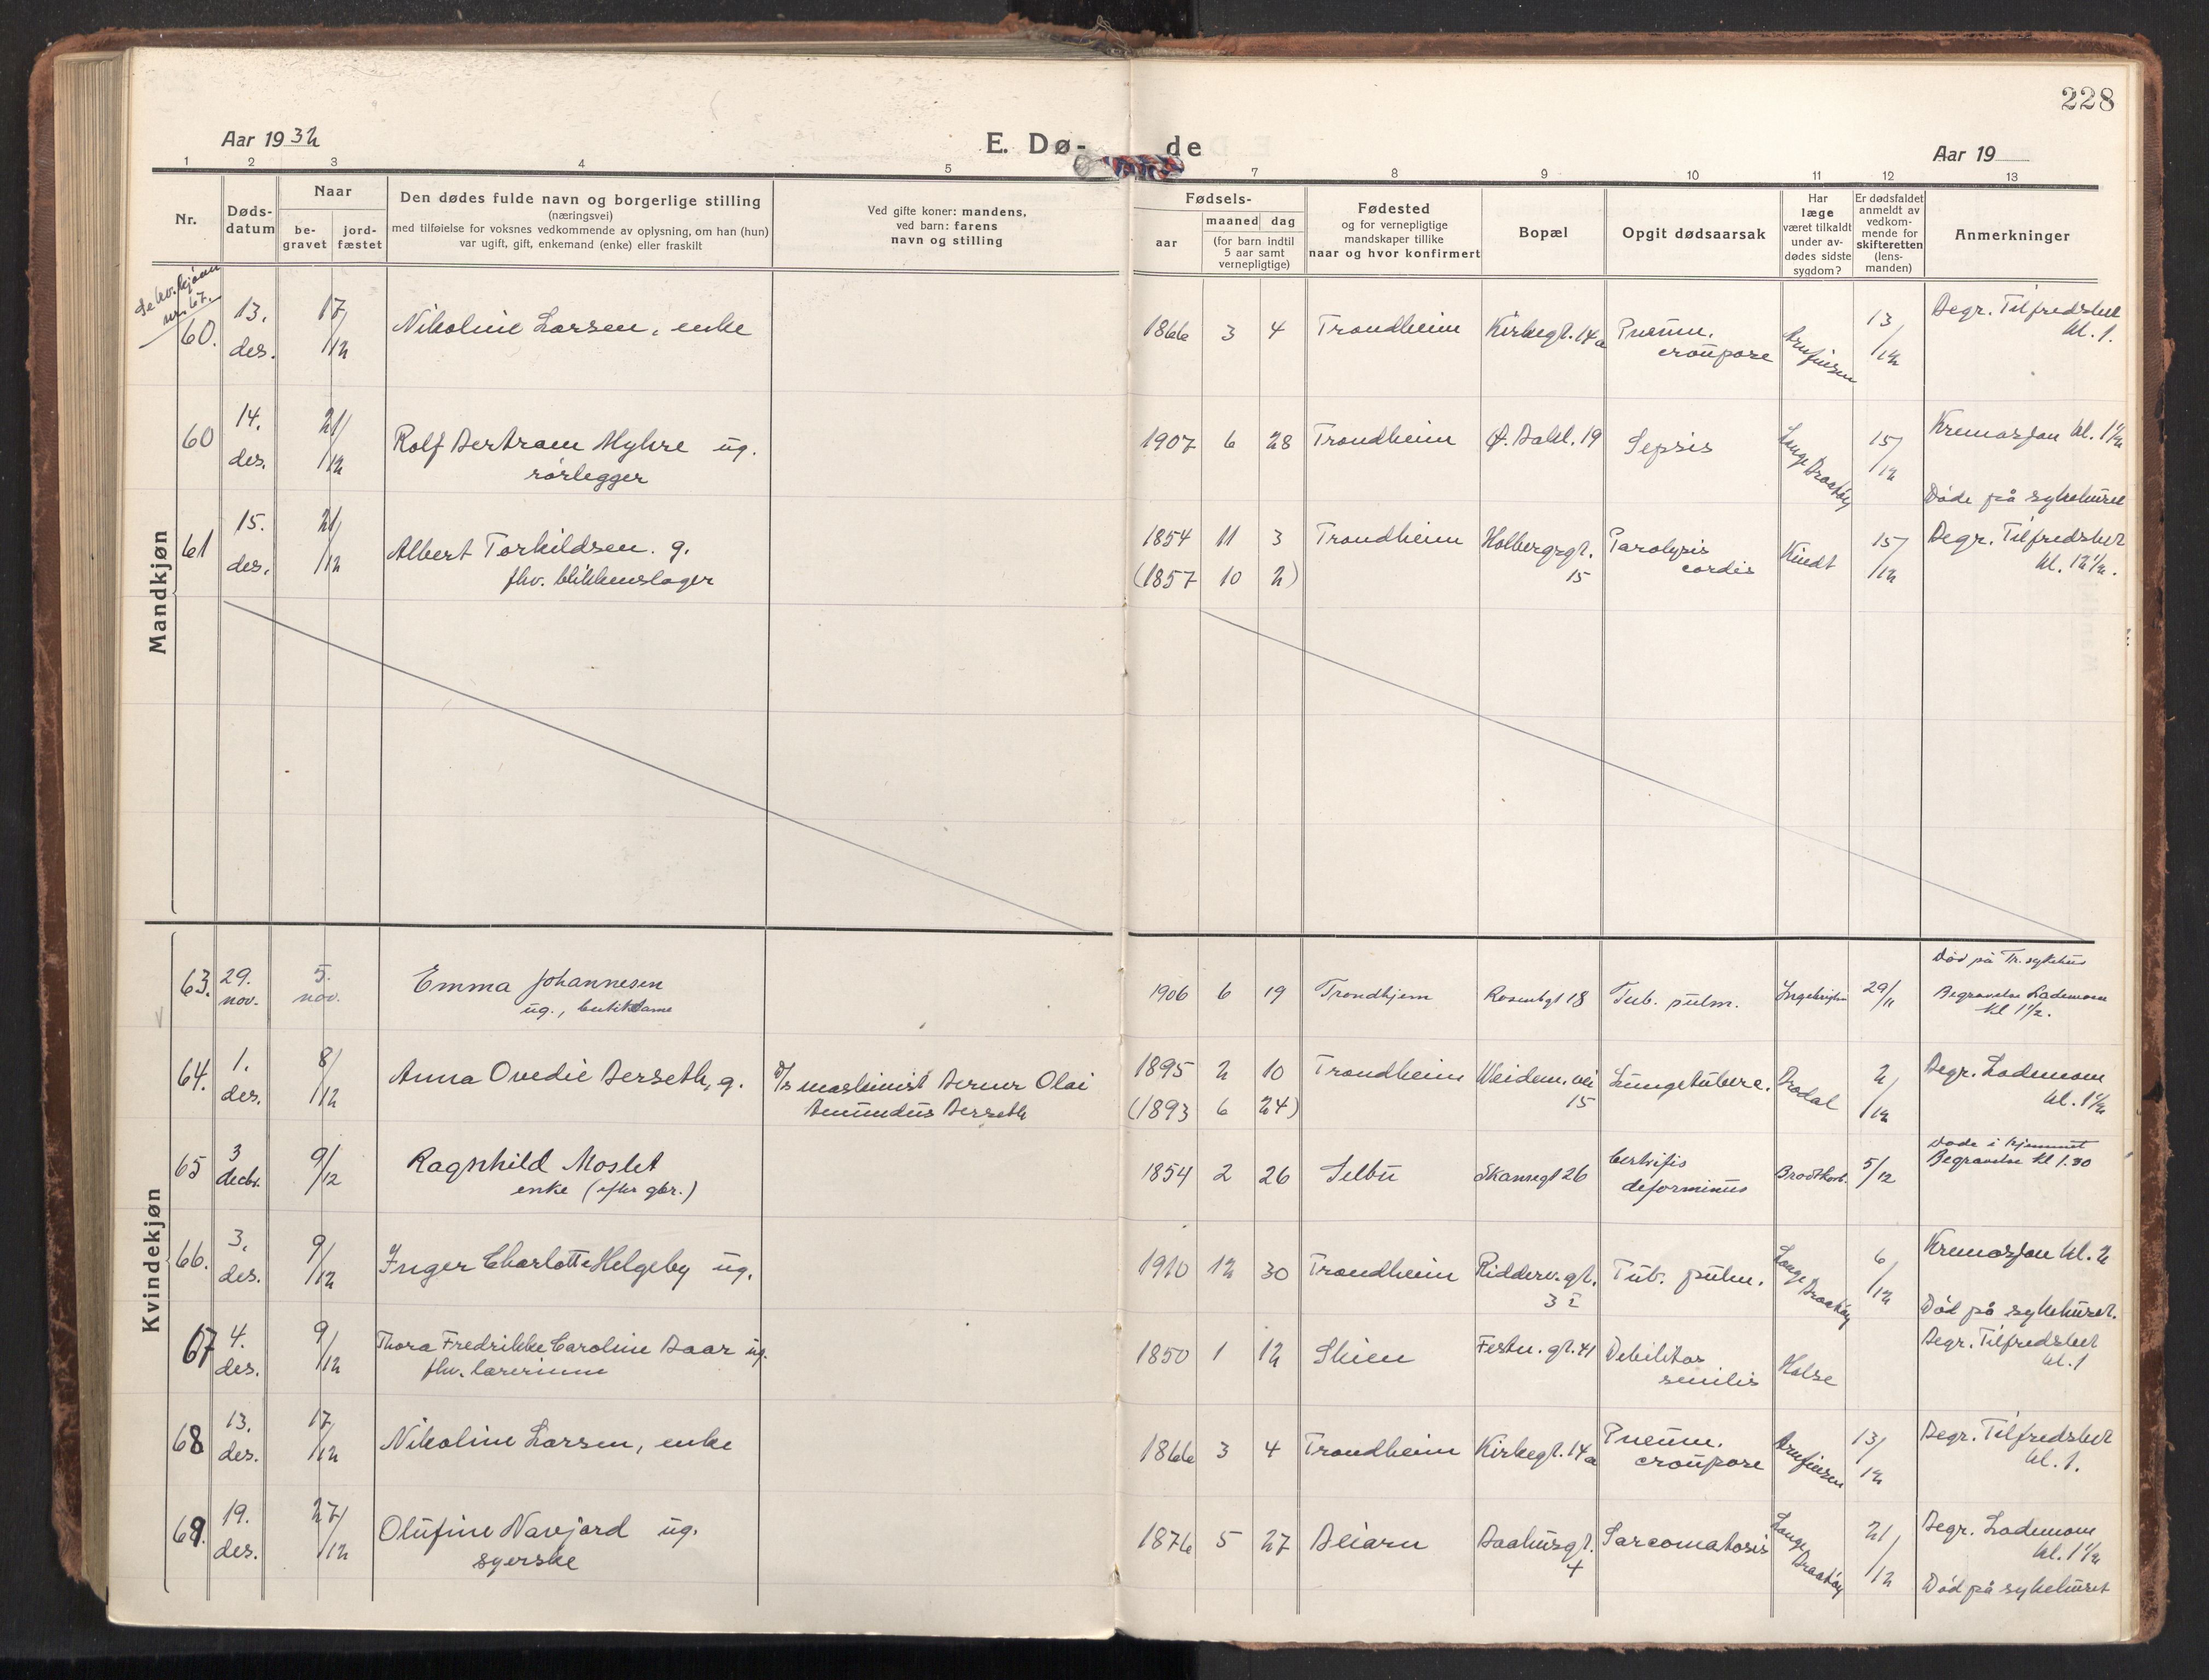 228
Aar 1932
E. Dø- de
Aar 19
1 2 3 4 5 7 8 9 10 11 12 13
Nr.
Døds-
datum
Naar
be-
gravet
jord-
fæstet
Den dødes fulde navn og borgerlige stilling
(næringsvei)
med tilføielse for voksnes vedkommende av oplysning, om han (hun)
var ugift, gift, enkemand (enke) eller fraskilt
Ved gifte koner: mandens,
ved barn: farens
navn og stilling
Fødsels-
aar
maaned dag
(for barn indtil
5 aar samt
vernepligtige)
Fødested
og for vernepligtige
mandskaper tillike
naar og hvor konfirmert
Bopæl
Opgit dødsaarsak
Har
læge
været tilkaldt
under av-
dødes sidste
sygdom?
Er dødsfaldet
anmeldt av
vedkom-
mende for
skifteretten
(lens-
manden)
Anmerkninger
Mandkjøn
Se kv.kjønn
nr. 67.
60. 13. des. 17/12 Nikoline Larsen, enke 1866 3 4 Trondheim Kirkegt. 14a Pneum. croupøse 13/12 Begr. Tilfredshet
kl. 1.
60 14. des. 21/12 Rolf Bertram Myhre ug. 1907 6 28 Trondheim Ø. Bakl. 19 Sepsis Lange 15/12 Kremasjon kl. 1½
rørlegger
Døde på sykehuset
61 15. des. 21/12 Albert Torkildsen. g. 1854 11 3 Trondheim Holbergsgt. 15 Paralysis cordis Kindt 15/12 Begr. Tilfredshet
fhv. blikkenslager (1857 10 2) kl. 12½.
Kvindekjøn
63. 29. nov. 5. nov. Emma Johannesen 1906 6 19 Trondhjem Rosenbgt 18 Tub. pulm. 29/11 Død på Tr. sykehus
ug., butikkdame Begravelse Lademoen
kl 1½.
64. 1. des. 8/12 Anna Ovedie Berseth, g. d/s maskinist Berner Olai 1895 2 10 Trondheim Weidem.vei 15 Lungetuberc. Brodal 2/12 Begr. Lademoen
Amundus Berseth (1893 6 24) kl. 1½
65 3 decbr. 9/12 Ragnhild Moslet 1854 2 26 Selbu Skansegt 26 deforminus 5/12 Døde i hjemmet
enke (efter gbr.) Begravelse kl 1.30
66. 3. des. 9/12 Inger Charlotte Helgeby ug. 1910 12 30 Trondheim Ridderv. gt. 3 I Tub. pulm. Lange 6/12 Kremasjon kl. 2
Død på sykehuset.
67 4. des. 9/12 Thora Fredrikke Caroline Baar ug. 1850 1 12 Skien Festn. gt. 41 Debilitas senilis Halse Begr. Tilfredshet
fhv. lærerinne kl. 1
68 13. des. 17/12 Nikoline Larsen, enke 1866 3 4 Trondheim Kirkegt. 14a Pneum. croupøse 13/12 Begr. Tilfredshet
kl. 1.
69. 19. des. 27/12 Olufine Navjord ug. 1876 5 27 Beiarn Baahusgt. 4 Sarcomatosis Lange 21/12 Begr. Lademoen
syerske kl. 1½
Død på sykehuset